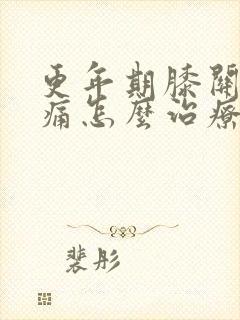 更年期膝關
痛怎麼治療
裴彤